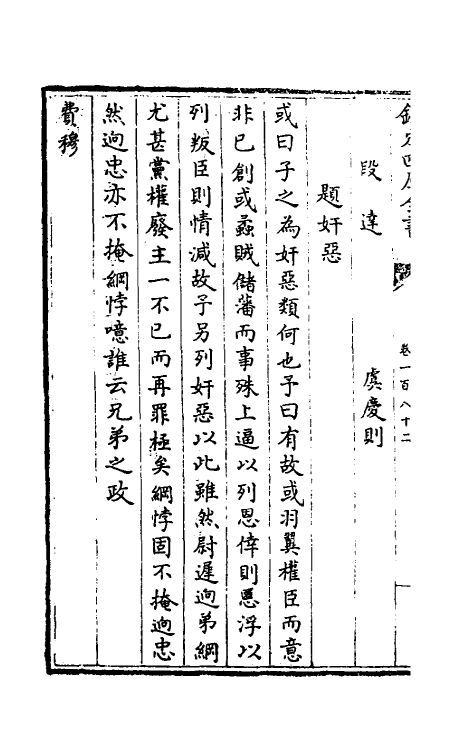 欽定四庫全書
卷一百八十二
段達　虞慶則
題奸惡
或曰子之為奸惡類何也予曰有故或羽翼權臣而意
非已創或蟊賊儲藩而事殊上逼以列恩倖則惡浮以
列叛臣則情減故予另列奸惡以此雖然尉遲逈弟綱
尤甚黨權廢主一不已而再罪極矣綱悖固不掩逈忠
然逈忠亦不掩綱悖噫誰云兄弟之政
費穆